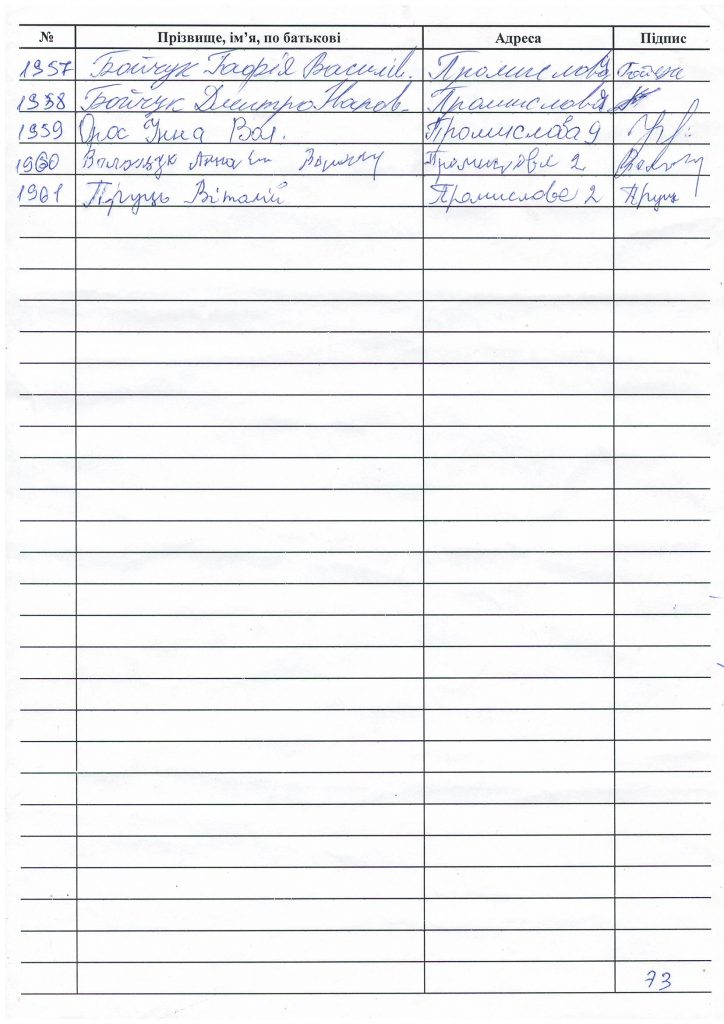 № Прізвище, ім’я, по батькові Адреса Підпис
1957 Бойчук Гафія Василів. Промислова Бойчук
1958 Бойчук Дмитро Промислова
1959 Орос Інна Вол. Промислова 9
1960 Волощук Анна 2 Волощ
1961 Пруць Віталій Промислова 2 Пруц
73